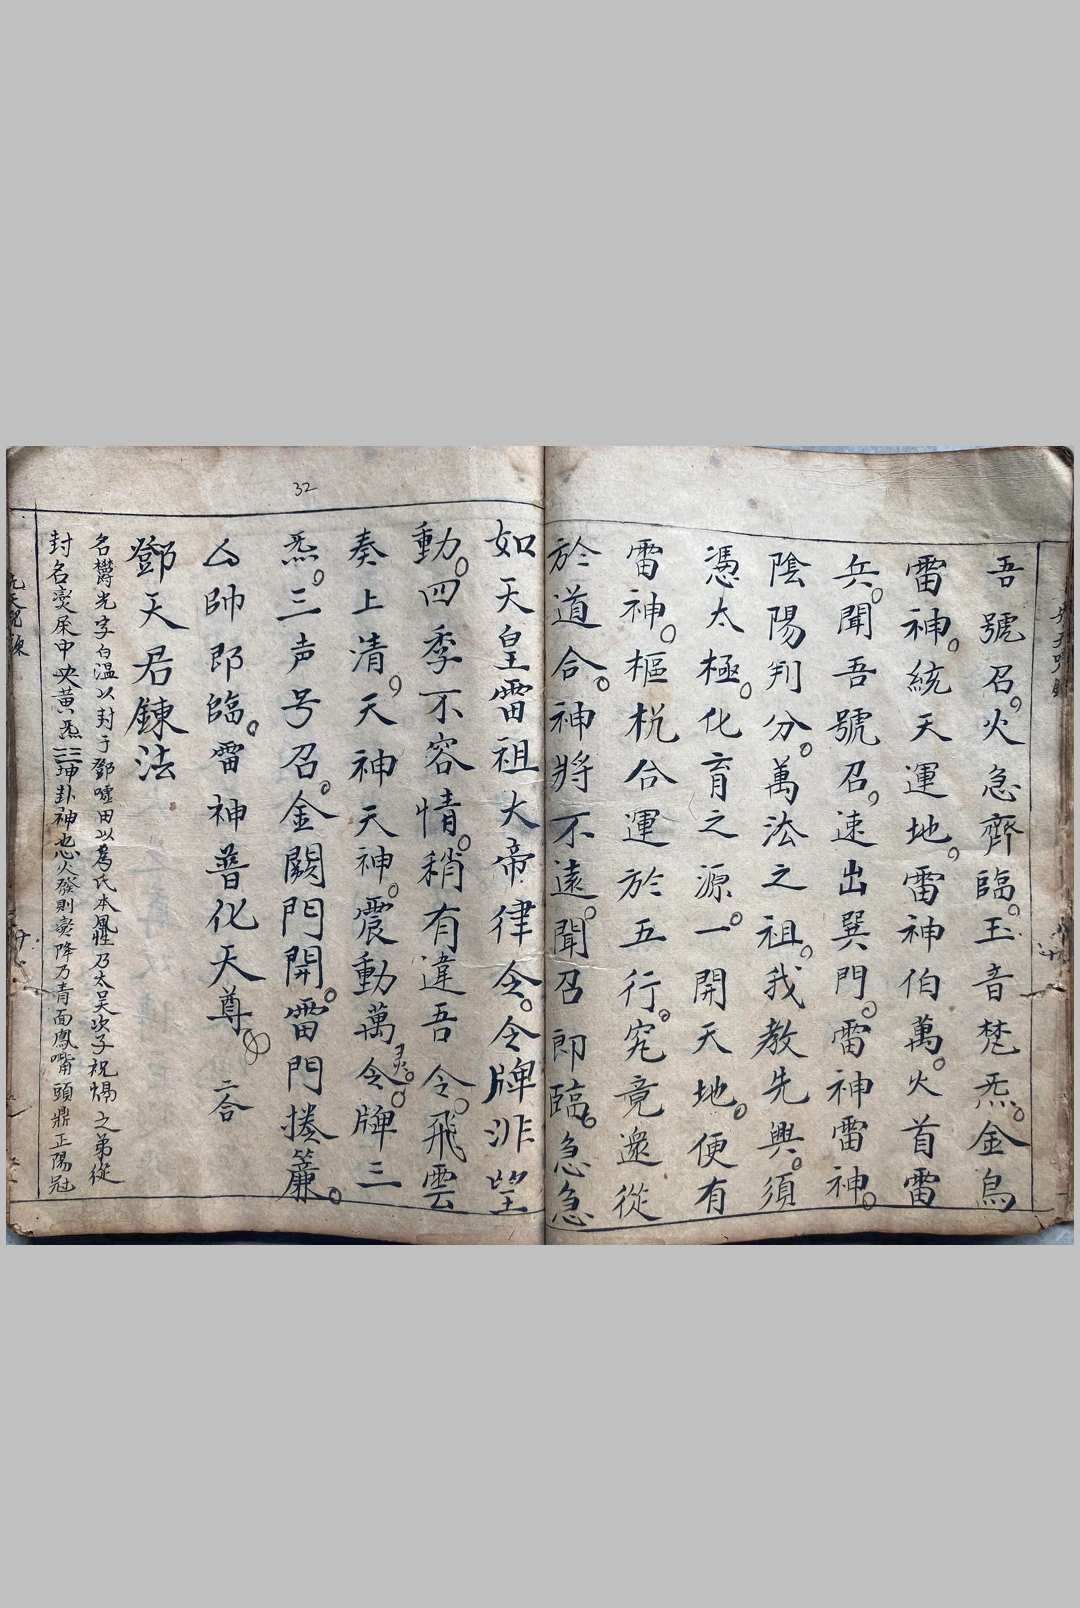 吾號召。火急齊臨。玉音梵炁。金烏
雷神。統天運地。雷神伯萬。火首雷
兵。聞吾號召。速出巽門。雷神雷神。
陰陽判分。萬法之祖。我教先興。須
憑太極。化育之源。一開天地。便有
雷神。樞机合運於五行。究竟邈從
於道合。神將不遠。聞召即臨。急急
如天皇雷祖大帝律令。令牌非望
動。四季不容情。稍有違吾令。飛雲
奏上清。天神天神。震動萬灵。令牌三
炁。三声号召。金闕門開。雷門捲簾。
厶帥即臨。雷神普化天尊 二合
鄧天君鍊法
名欝光字白溫以封于鄧墟田以為氏本風姓乃太吴次子祝焬之弟從
封名燮居中央黄炁☷坤卦神也心火發則変降乃青面鳳嘴頭鼎正陽冠
32